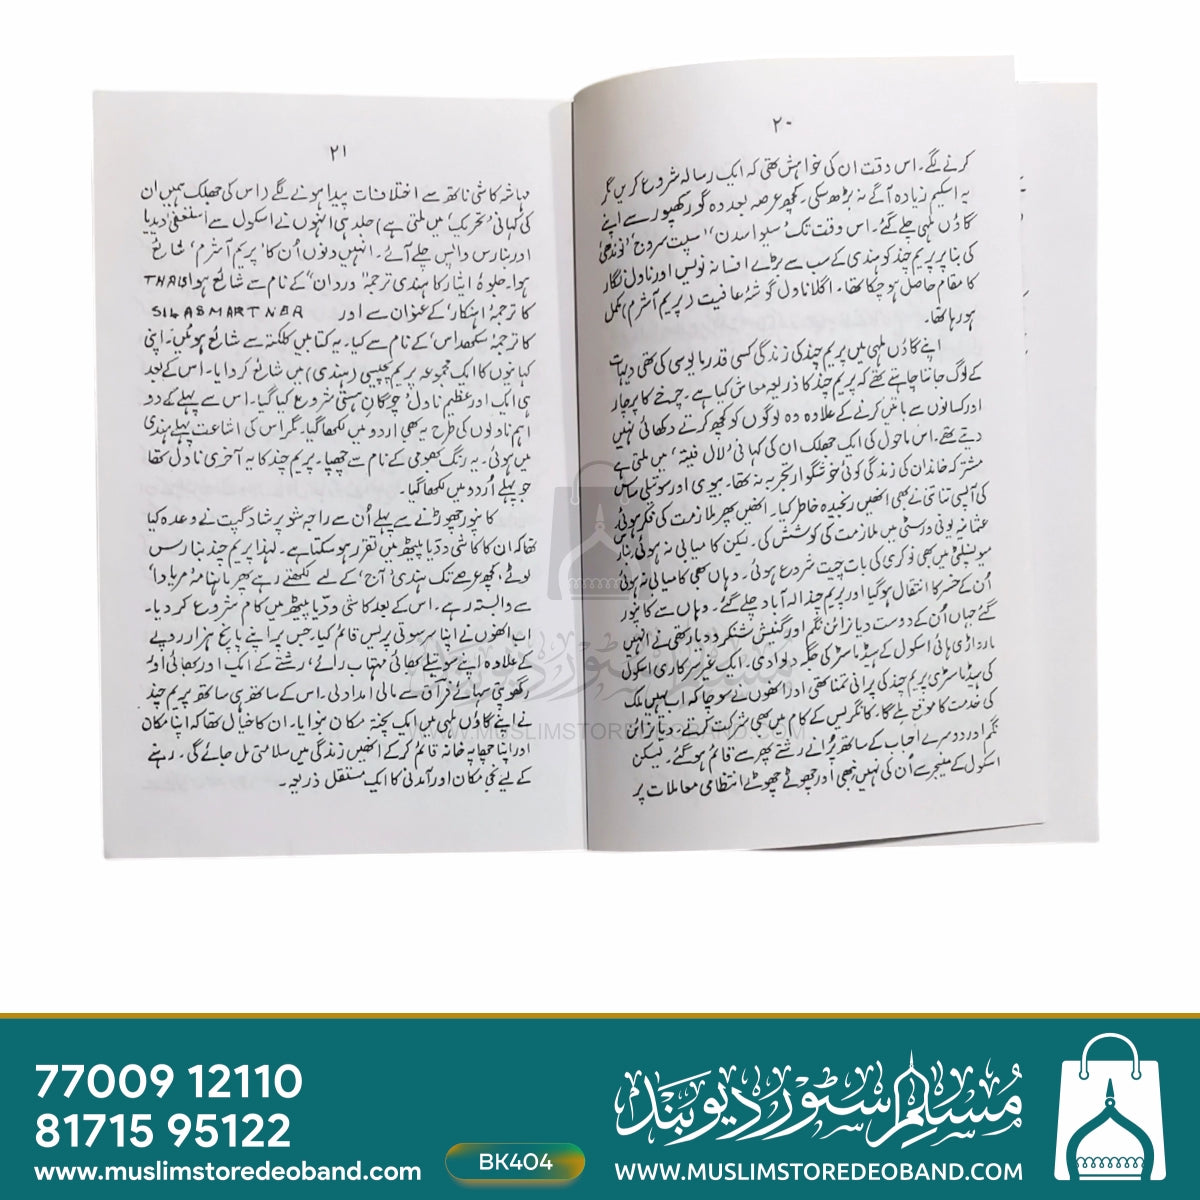 ۲۰
کرنے لگے۔ اس وقت ان کی خواہش تھی کہ ایک رسالہ شروع کریں مگر
یہ اسکیم زیادہ آگے نہ بڑھ سکی۔ کچھ عرصہ بعد وہ گورکھپور سے اپنے
گاؤں لمہی چلے گئے۔ اس وقت تک 'سیوا سدن' 'سپت سروج' 'نوندھی'
کی بنا پر پریم چند کو ہندی کے سب سے بڑے افسانہ نویس اور ناول نگار
کا مقام حاصل ہو چکا تھا۔ اگلا ناول گوشۂ عافیت (پریم آشرم) مکمل
ہو رہا تھا۔
اپنے گاؤں لمہی میں پریم چند کی زندگی کسی قدر مایوسی کی تھی دیہات
کے لوگ جاننا چاہتے تھے کہ پریم چند کا ذریعہ معاش کیا ہے۔ چرخے کا پرچار
اور کسانوں سے باتیں کرنے کے علاوہ وہ لوگوں کو کچھ کرتے دکھائی نہیں
دیتے تھے۔ اس ماحول کی ایک جھلک ان کی کہانی 'لال فیتہ' میں ملتی ہے
مشترکہ خاندان کی زندگی کوئی خوشگوار تجربہ نہ تھا۔ بیوی اور سوتیلی ساس
کی آپسی تناتنی نے بھی انھیں رنجیدہ خاطر کیا۔ انھیں پھر ملازمت کی فکر ہوئی
عثمانیہ یونیورسٹی میں ملازمت کی کوشش کی۔ لیکن کامیابی نہ ہوئی بنارس
میونسپلٹی میں بھی نوکری کی بات چیت شروع ہوئی۔ وہاں بھی کامیابی نہ ہوئی
اُن کے خسر کا انتقال ہو گیا اور پریم چند الہ آباد چلے گئے۔ وہاں سے کانپور
گئے جہاں اُن کے دوست دیا نرائن نگم اور گنیش شنکر ودیارتھی نے انہیں
مارواڑی ہائی اسکول کے ہیڈ ماسٹر کی جگہ دلوا دی۔ ایک غیر سرکاری اسکول
کی ہیڈ ماسٹری پریم چند کی پرانی تمنا تھی اور انھوں نے سوچا کہ اب انہیں ملک
کی خدمت کا موقع ملے گا۔ کانگریس کے کام میں بھی شرکت کرتے۔ دیا نرائن
نگم اور دوسرے احباب کے ساتھ پُرانے رشتے پھر سے قائم ہو گئے۔ لیکن
اسکول کے منیجر سے اُن کی نہیں نبھی اور چھوٹے چھوٹے انتظامی معاملات پر
۲۱
مہاشہ کاشی ناتھ سے اختلافات پیدا ہونے لگے (اس کی جھلک ہمیں ان
کی کہانی 'تحریک' میں ملتی ہے) جلد ہی انہوں نے اسکول سے استعفیٰ دیدیا
اور بنارس واپس چلے آئے۔ انہیں دنوں اُن کا 'پریم آشرم' شائع
ہوا۔ جلوۂ ایثار کا ہندی ترجمہ 'وردان' کے نام سے شائع ہوا THAIS
کا ترجمہ 'اہنکار' کے عنوان سے اور SILASMARTNER
کا ترجمہ 'سکھداس' کے نام سے کیا۔ یہ کتابیں کلکتہ سے شائع ہوئیں۔ اپنی
کہانیوں کا ایک مجموعہ پریم پچیسی (ہندی) میں شائع کر دایا۔ اس کے بعد
ہی ایک اور عظیم ناول 'چوگانِ ہستی' شروع کیا گیا۔ اس سے پہلے کے دو
اہم ناولوں کی طرح یہ بھی اردو میں لکھا گیا۔ مگر اس کی اشاعت پہلے ہندی
میں ہوئی۔ یہ رنگ بھومی کے نام سے چھپا۔ پریم چند کا یہ آخری ناول تھا
جو پہلے اُردو میں لکھا گیا۔
کانپور چھوڑنے سے پہلے اُن سے راجہ شو پرشاد گپت نے وعدہ کیا
تھا کہ ان کا کاشی ودیا پیٹھ میں تقرر ہو سکتا ہے۔ لہذا پریم چند بنارس
لوٹے، کچھ عرصے تک ہندی 'آج' کے لیے لکھتے رہے پھر ماہنامہ 'مریادا'
سے وابستہ رہے۔ اس کے بعد کاشی ودیا پیٹھ میں کام شروع کر دیا۔
اب انھوں نے اپنا سرسوتی پریس قائم کیا۔ جس پر اپنے پانچ ہزار روپے
کے علاوہ اپنے سوتیلے بھائی مہتاب رائے، رشتے کے ایک اور بھائی اور
رگھوپتی سہائے فراق سے مالی امداد لی۔ اس کے ساتھ ہی ساتھ پریم چند
نے اپنے گاؤں لمہی میں ایک پختہ مکان بنوایا۔ ان کا خیال تھا کہ اپنا مکان
اور اپنا چھاپہ خانہ قائم کر کے انھیں زندگی میں سلامتی مل جائے گی۔ رہنے
کے لیے نجی مکان اور آمدنی کا ایک مستقل ذریعہ۔
مسلم سٹور دیوبند
WWW.MUSLIMSTOREDEOBAND.COM
77009 12110
81715 95122
www.muslimstoredeoband.com
BK404
مسلم سٹور دیوبند
WWW.MUSLIMSTOREDEOBAND.COM